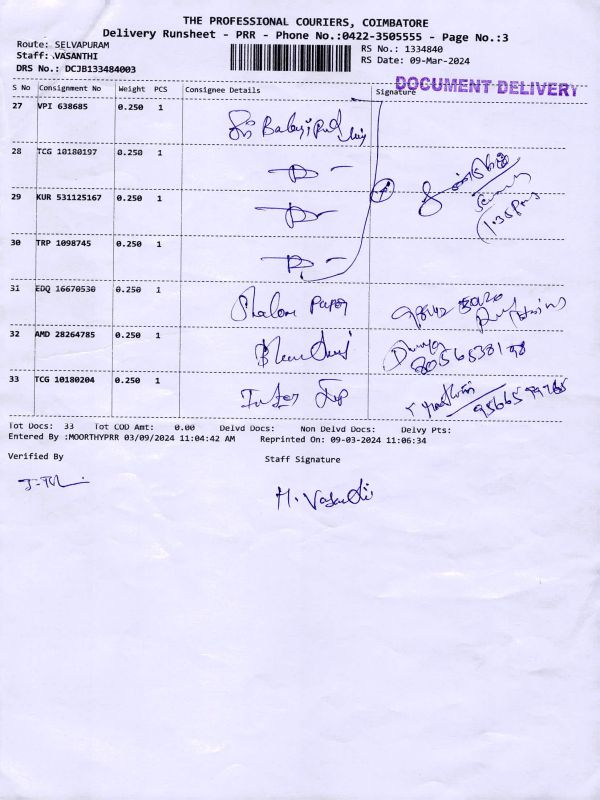 THE PROFESSIONAL COURIERS, COIMBATORE
Delivery Runsheet - PRR - Phone No.:0422-3505555 - Page No.:3
Route: SELVAPURAM
Staff: VASANTHI
DRS No.: DCJB133484003
RS No.: 1334840
RS Date: 09-Mar-2024
DOCUMENT DELIVERY
S No Consignment No Weight PCS Consignee Details Signature
27 VPI 638685 0.250 1
Sri Balaji
28 TCG 10180197 0.250 1
29 KUR 531125167 0.250 1
1.35pm
30 TRP 1098745 0.250 1
31 EDQ 16670530 0.250 1
Shalom Paper
32 AMD 28264785 0.250 1
8056538198
33 TCG 10180204 0.250 1
Tot Docs: 33 Tot COD Amt: 0.00 Delvd Docs: Non Delvd Docs: Delvy Pts:
Entered By :MOORTHYPRR 03/09/2024 11:04:42 AM Reprinted On: 09-03-2024 11:06:34
Verified By Staff Signature
M. Vasanthi